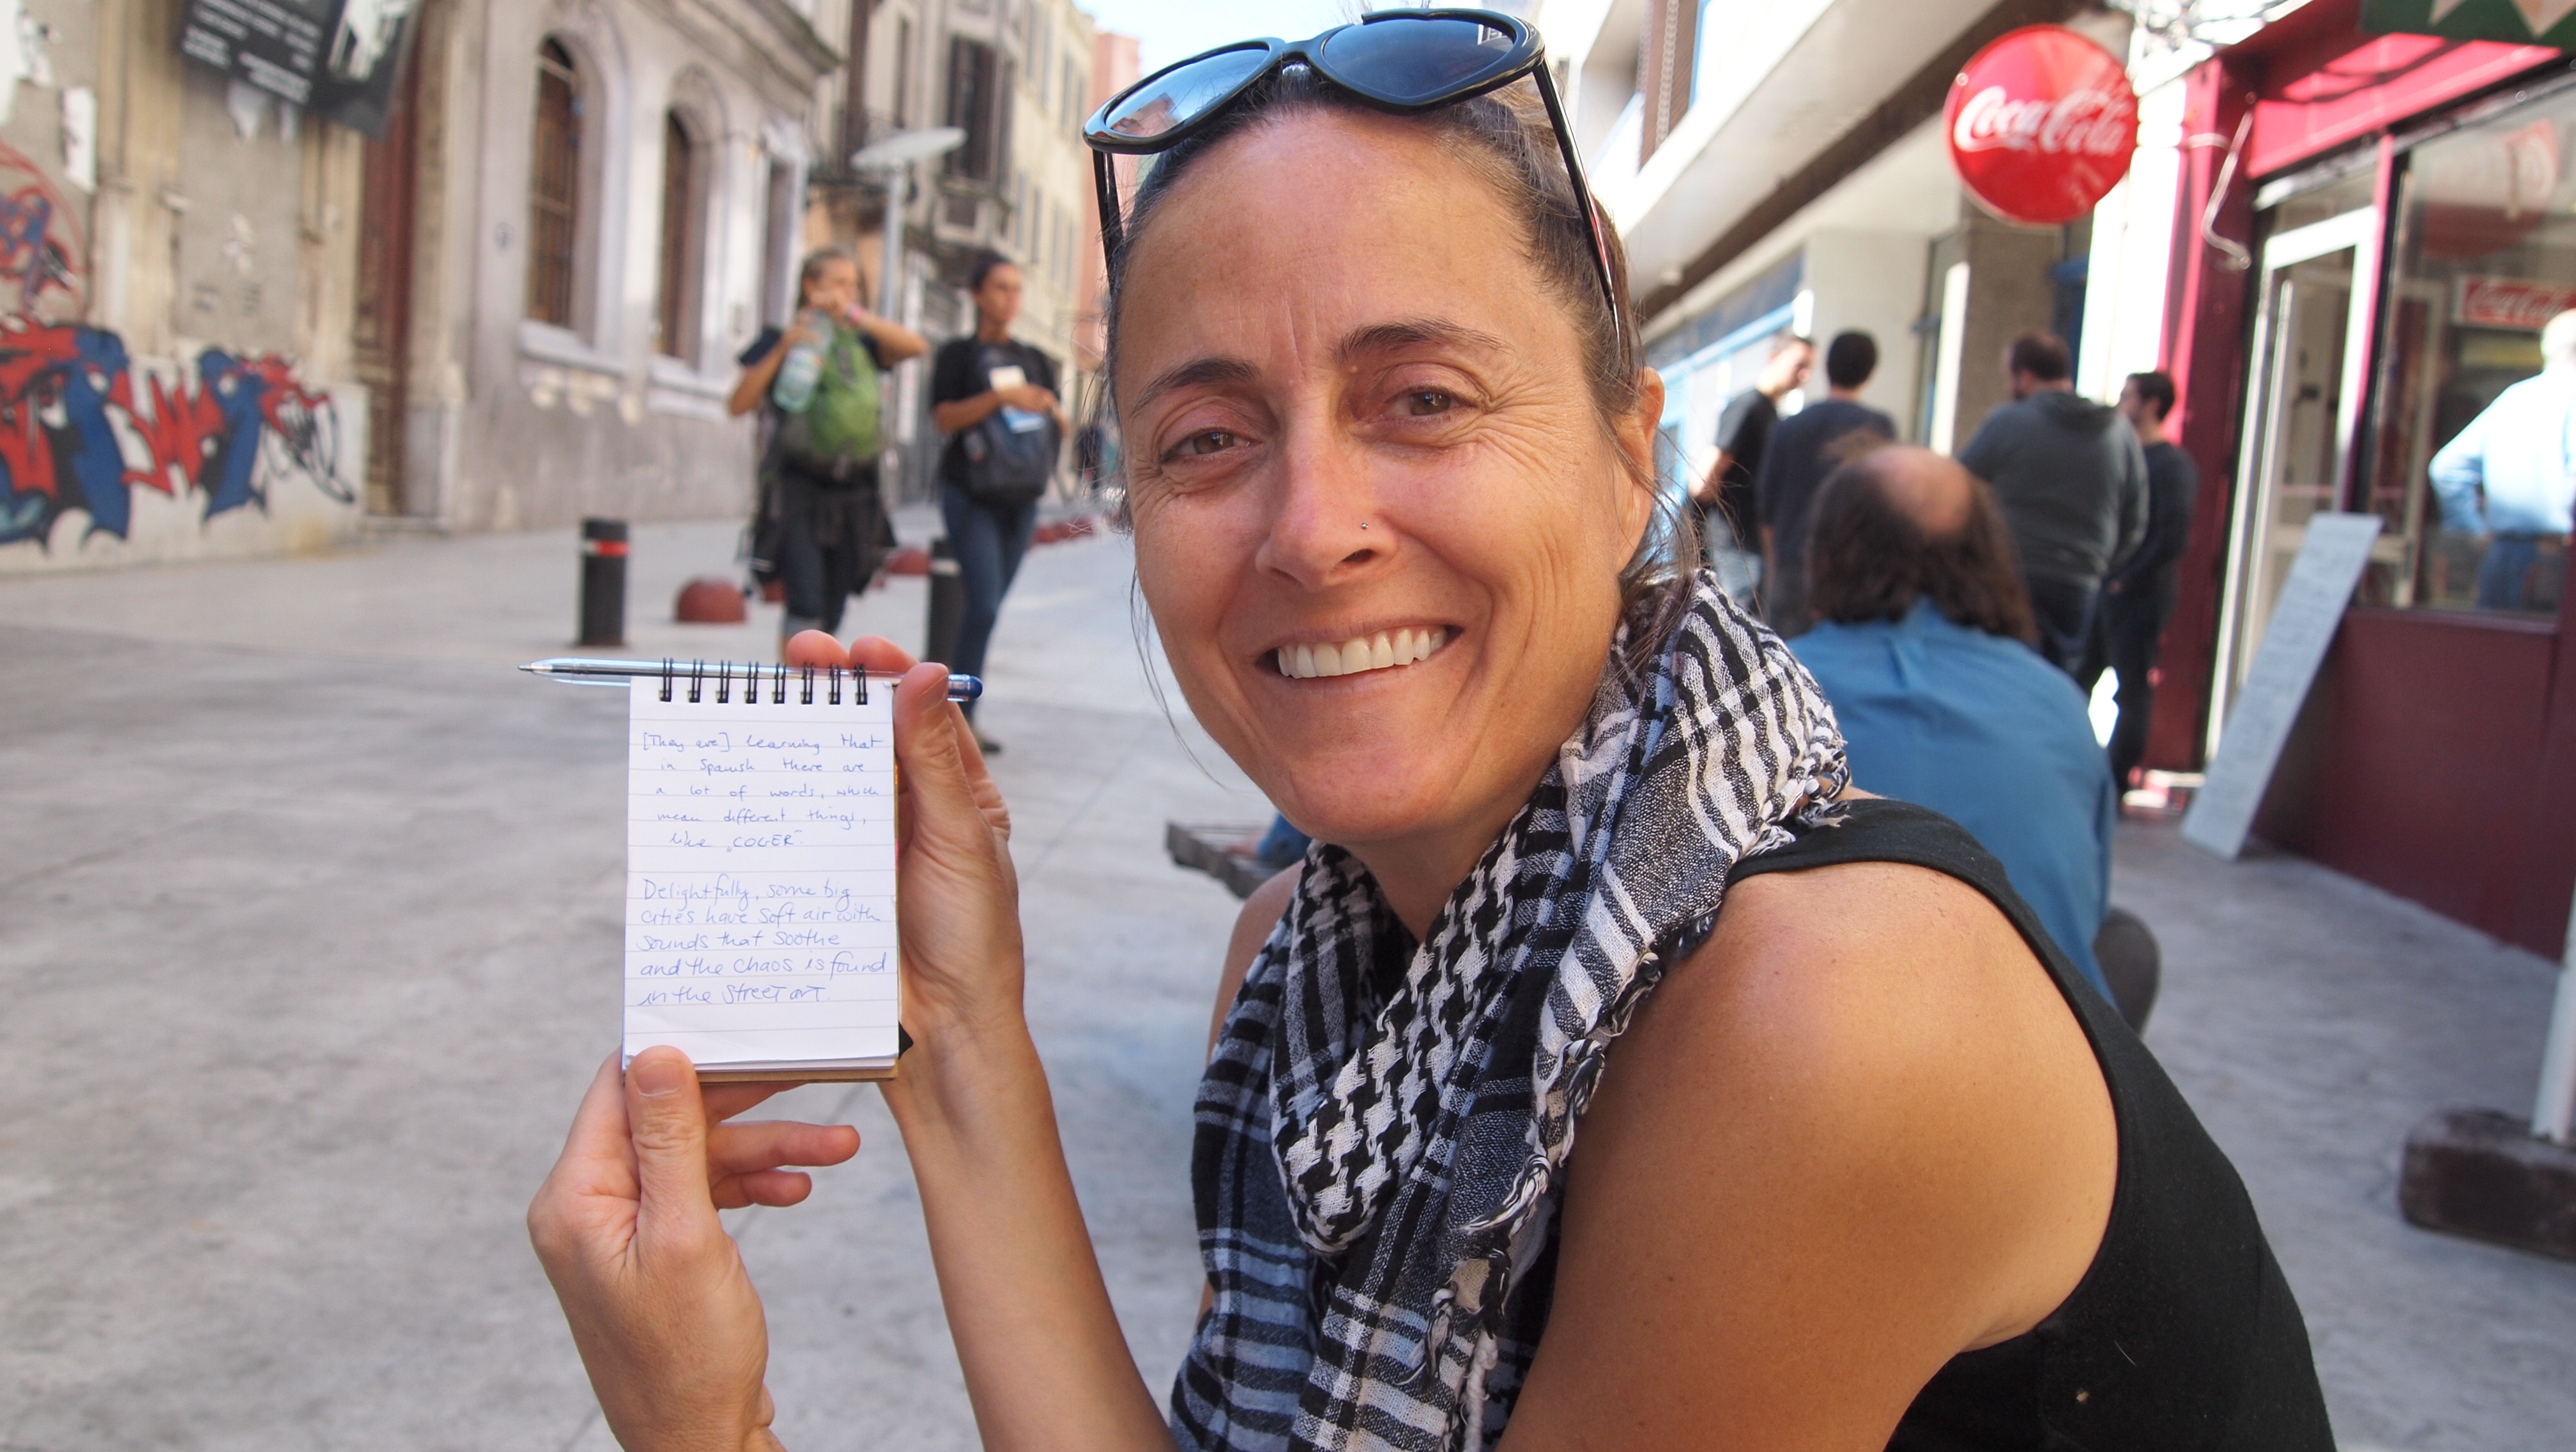 [They are] learning that
in Spanish there are
a lot of words, which
mean different things,
like „COGER"
Delightfully, some big
cities have soft air with
sounds that soothe
and the chaos is found
in the street art.
Coca-Cola
Coca-Cola